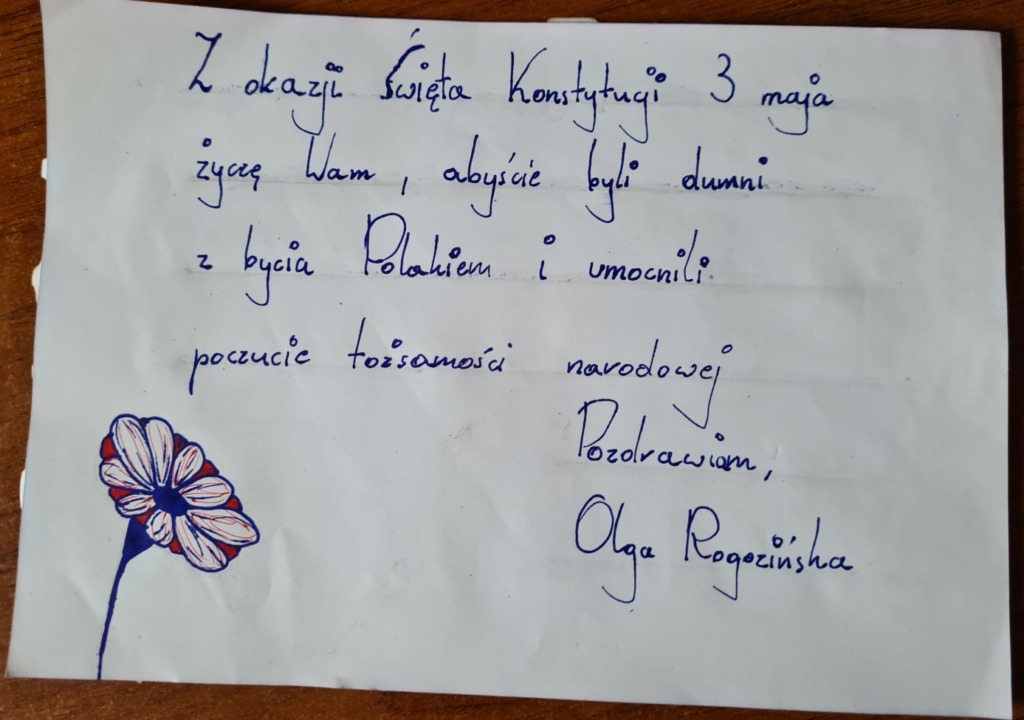 Z okazji Święta Konstytucji 3 maja
życzę Wam, abyście byli dumni
z bycia Polakiem i umocnili
poczucie tożsamości narodowej
Pozdrawiam,
Olga Rogozińska